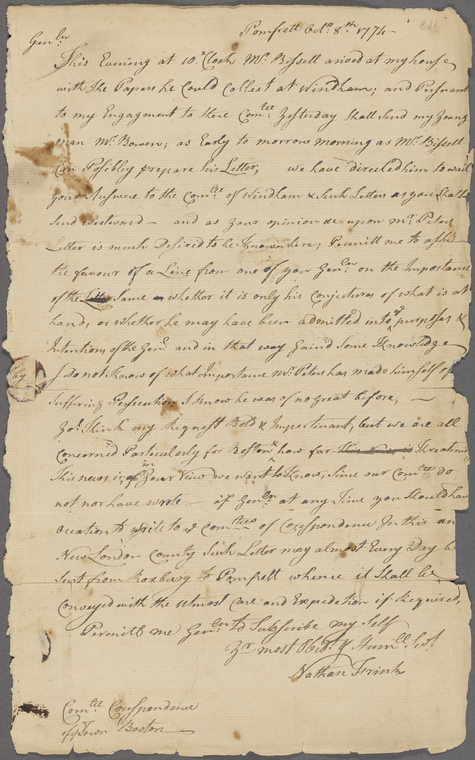 Pomfrett Octr. 8th. 1774 -
Genln
This Evening at 10. Clock Mr. Bissell arived at my house
with the Papers he Could Collect at Windham; and Pursuant
to my Engagment to there Comtee Yesterday Shall Send my Young
man Mr. Bowen, as Early to morrow morning as Mr. Bissell
Can Posibly prepare his Letter, we have directed him to wait
your Answere to the Comtee of Windham & Such Letters as you Shall
Send Westward - and as your opinion &c upon Mr. Peters
Letter is much Desired to be Known here; Permitt me to ask
the favour of a Line from one of you Genln on the Importance
of the Same whether it is only his Conjectures of what is at
hand, or whether he may have been admitted into ye purposes &
Intentions of the Genl. and in that way gained Some Knowledge
I do not Know of what Importance Mr. Peters has made himself of
Suffering Persecution I know he was of no great before, -
Yo'l think my Request Bold & Impertinant, but we are all
Concerned Particularly for Boston how far Threatning
this news is, in Your View we want to Know, Since our Comtee do
not nor have wrote - if Genln at any Time you Should have
occation to write to ye Comtees of Corespondence In this an
New London County Such Letter may almost Every Day be
Sent from Roxbury to Pomfrett whence it Shall be
Conveyed with the Utmost Care and Expedition if Required,
Permitt me Genln to Subscribe my Self
Yr most Obedt. & Humle Sert
Nathan Frink
Comtee Corespondence
of ye Town Boston -